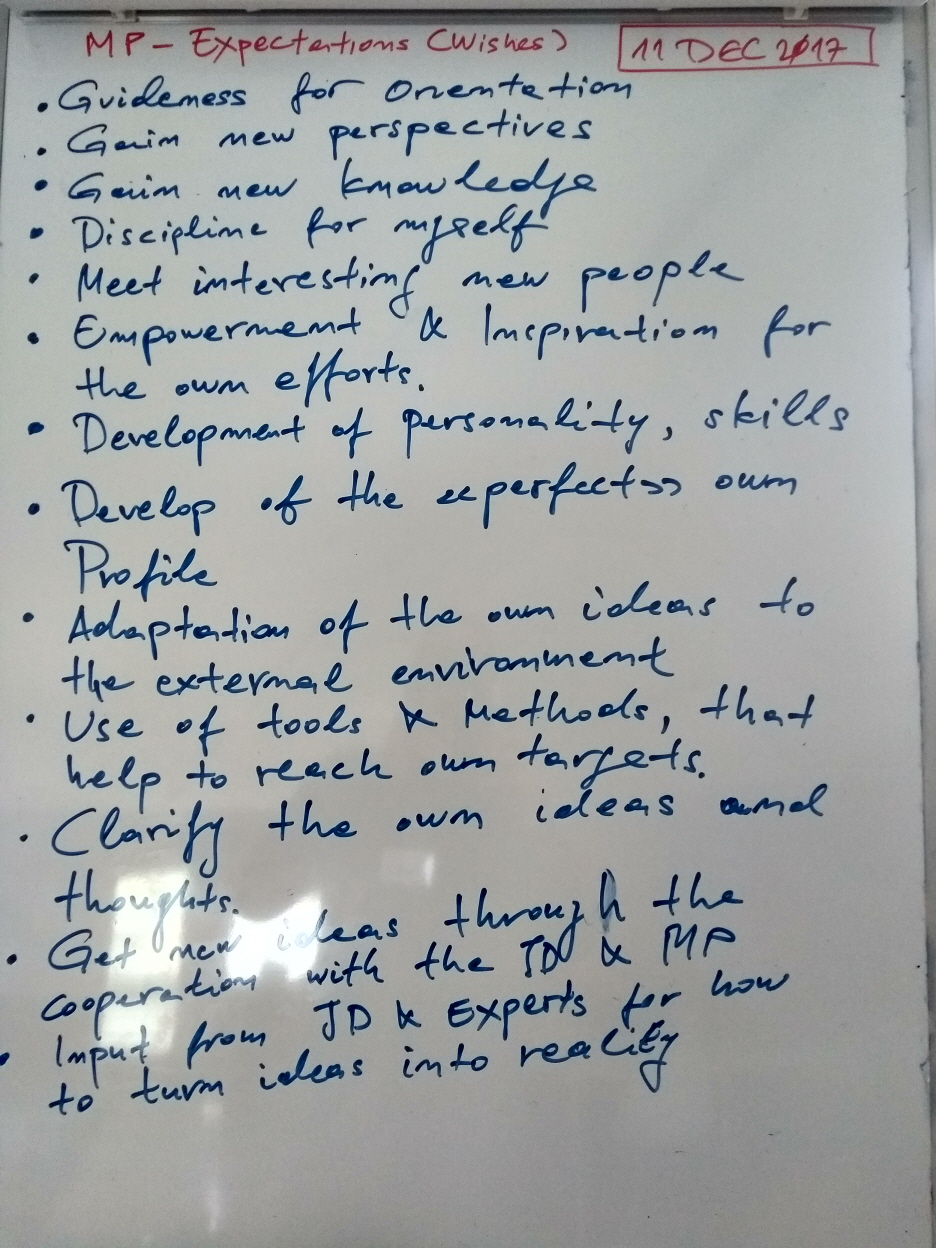 MP - Expectations (Wishes) 11 DEC 2017
• Guideness for Orientation
• Gain new perspectives
• Gain new knowledge
• Discipline for myself
• Meet interesting new people
• Empowerment & Inspiration for
the own efforts.
• Development of personality, skills
• Develop of the own
Profile
• Adaptation of the own ideas to
the external environment
• Use of tools & Methods, that
help to reach own targets.
• Clarify the own ideas and
thoughts.
• Get new ideas through the
cooperation with the JD & MP
• Input from JD & Experts for how
to turn ideas into reality